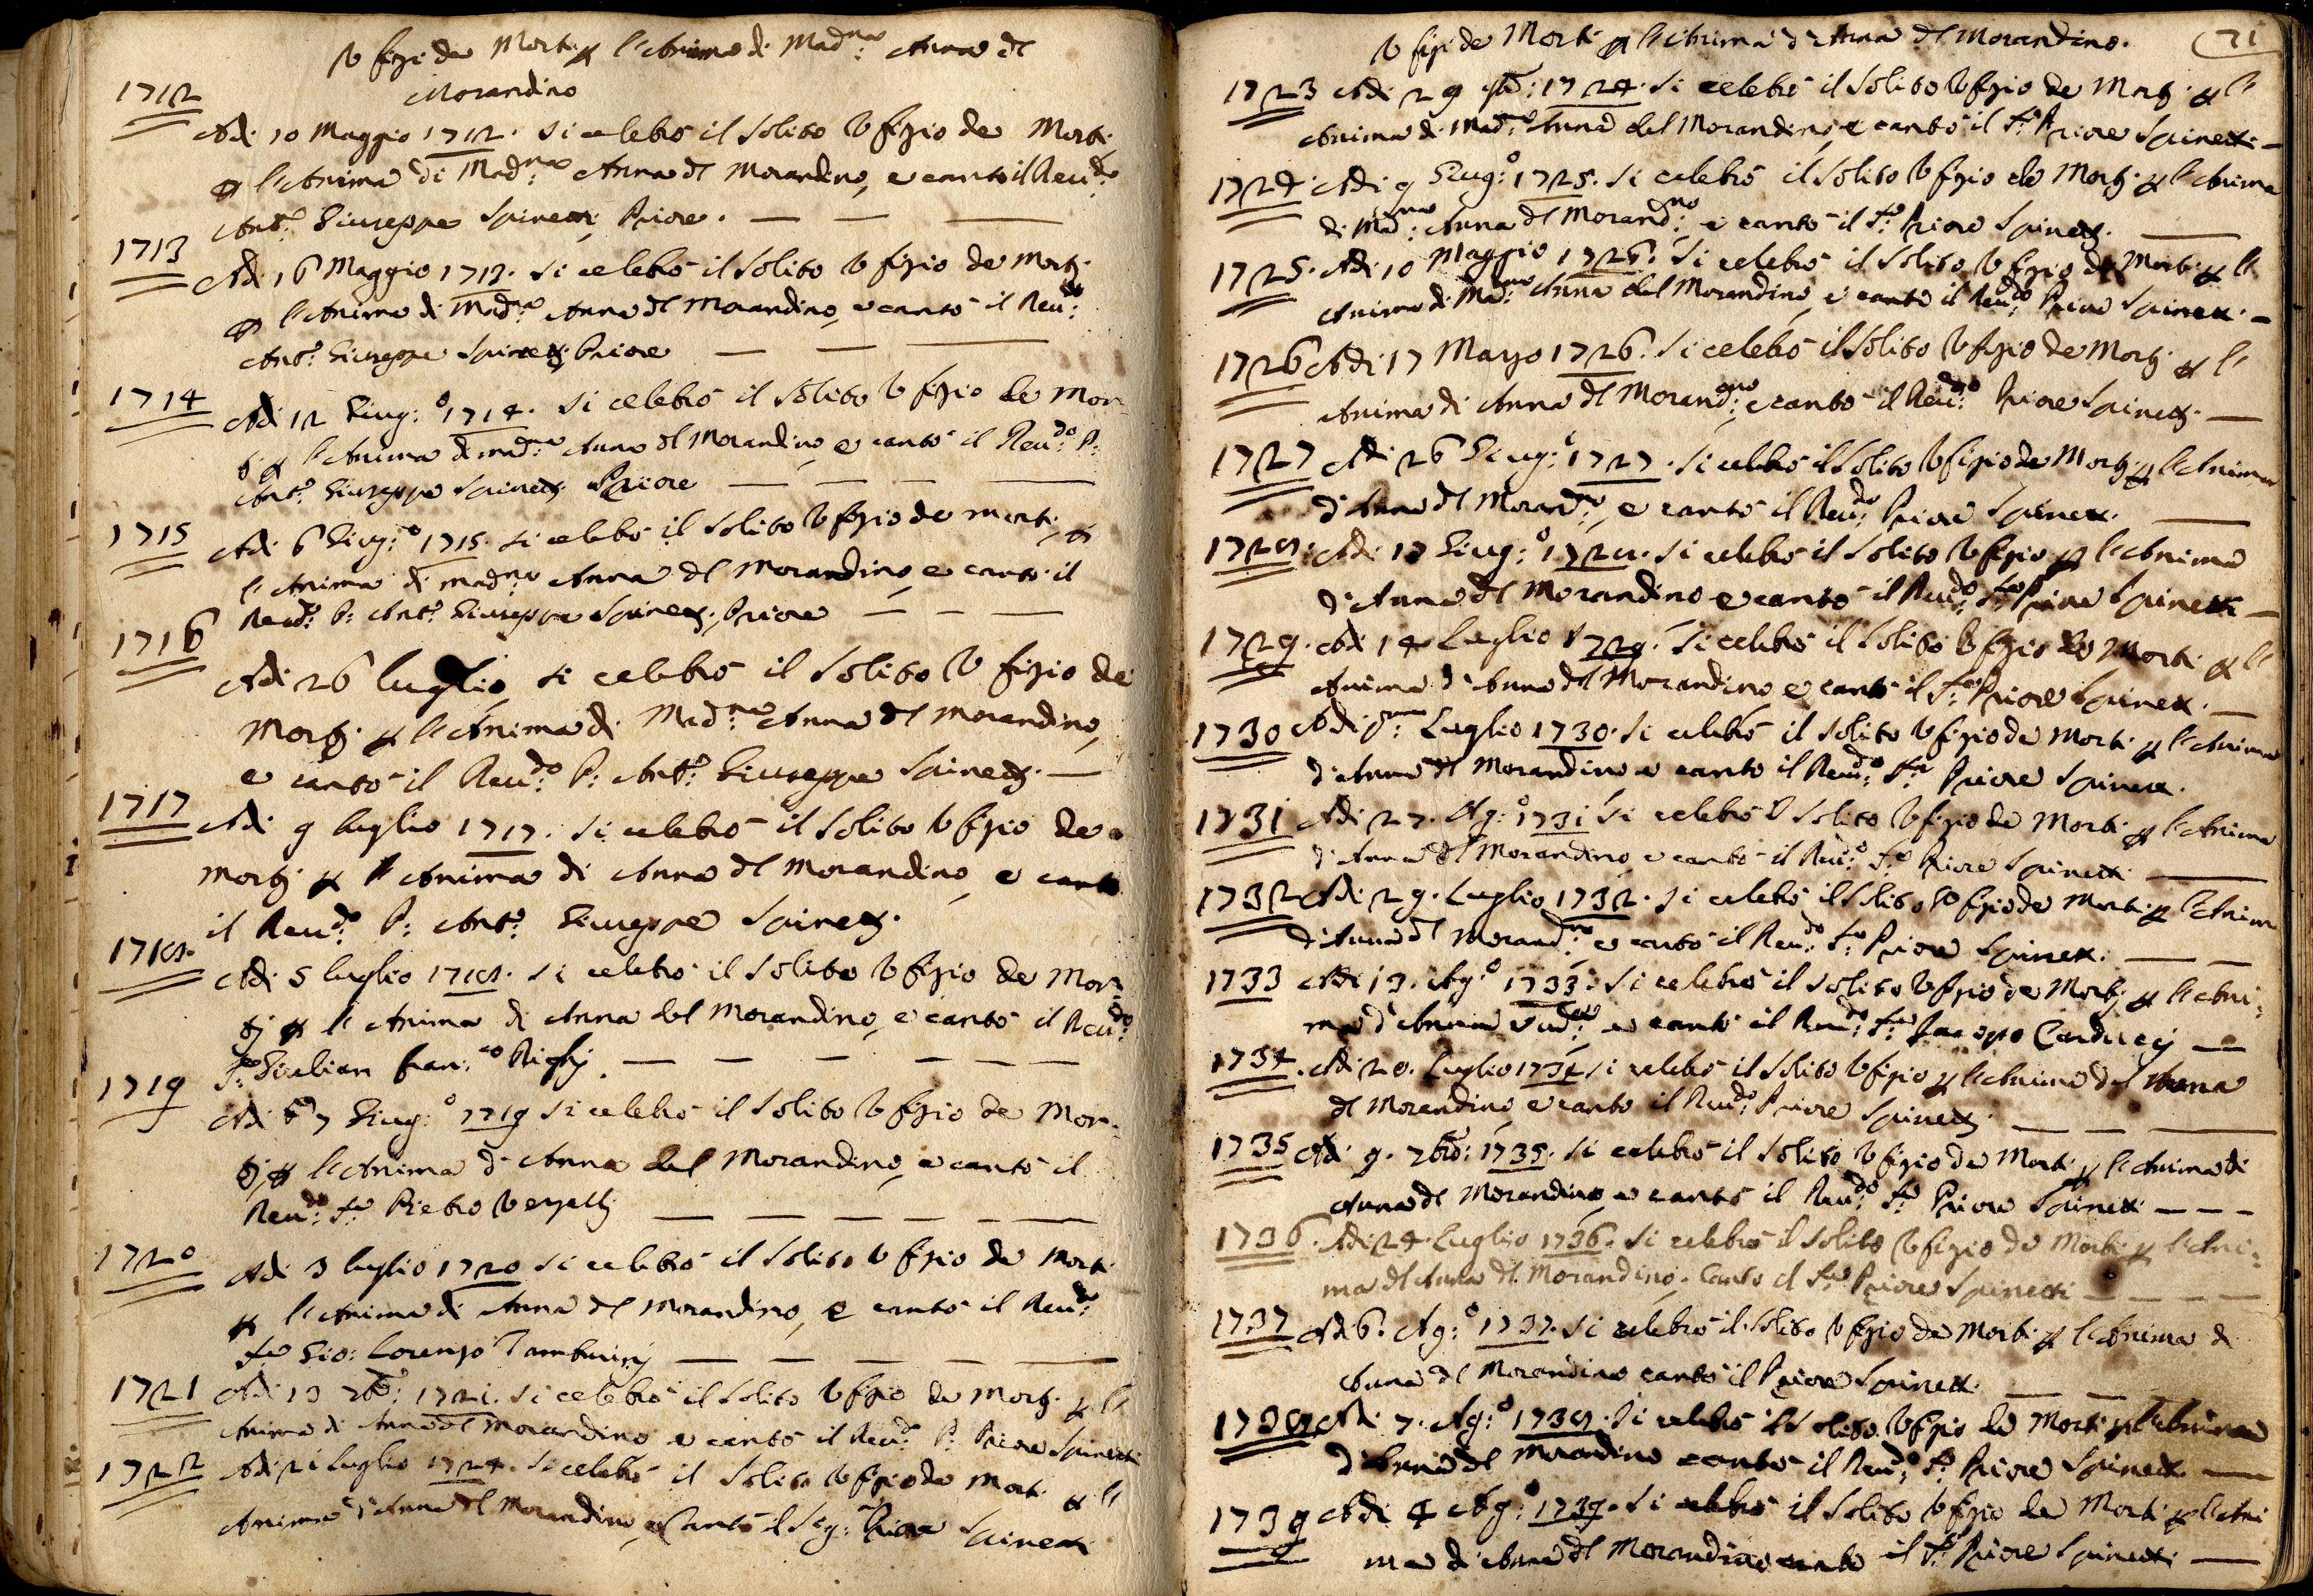 Vfizi de Morti p l'Anima di Mad.na Anna dl
Morandino
1712
Adi 10 Maggio 1712. Si celebrò il Solito Vfizio de Morti
p l'Anima di Mad.na Anna dl Morandino, e cantò il Reu.do
Ant.o Giuseppe Spinetti Priore.
1713
Adi 16 Maggio 1713. Si celebrò il Solito Vfizio de Morti
p l'Anima di Mad.na Anna dl Morandino, e cantò il Reu.do
Ant.o Giuseppe Spinetti Priore
1714
Adi 12 Giug:o 1714. Si celebrò il Solito Vfizio de Mor-
ti p l'Anima di Mad.na Anna dl Morandino, e cantò il Reu.do P:
Ant.o Giuseppe Spinetti Priore
1715
Adi 6 Giug:o 1715. Si celebrò il Solito Vfizio de Morti, p
l'Anima di Mad.na Anna dl Morandino, e cantò il
Reu.do P: Ant.o Giuseppe Spinetti, Priore
1716
Adi 26 luglio, Si celebrò il Solito Vfizio de
Morti p l'Anima di Mad.na Anna dl Morandino,
e cantò il Reu.do P: Ant.o Giuseppe Spinetti.
1717
Adi 9 luglio 1717. Si celebrò il Solito Vfizio de
Morti p l'Anima di Anna dl Morandino, e cantò
il Reu.do P: Ant.o Giuseppe Spinetti.
1718.
Adi 5 luglio 1718. Si celebrò il Solito Vfizio de Mor-
ti p l'Anima di Anna del Morandino, e cantò il Reu.do
Giulian Fran:co Righi.
1719
Adi 7 Giug:o 1719 Si celebrò il Solito Vfizio de Mor-
ti p l'Anima d'Anna del Morandino, e cantò il
Reu.do Pietro
1720
Adi 3 luglio 1720 Si celebrò il Solito Vfizio de Morti
p l'Anima di Anna dl Morandino, e cantò il Reu.do
Gio: Lorenzo Tamburini
1721 Adi 13 7bre: 1721. Si celebrò il Solito Vfizio de Morti p l'
Anima di Anna dl Morandino e cantò il Reu.do P: Priore Spinetti
1722 Adi 21 Luglio 1724. Si celebrò il Solito Vfizio de Morti p l'
Anima d'Anna dl Morandino, e Cantò il Sig: Priore Spinetti
Vfizi de Morti p l'Anima d'Anna dl Morandino. 71
1723 Adi 29 1724. Si celebrò il Solito Vfizio de Morti p l'
Anima di Mad.na Anna del Morandino, e cantò il Priore Spinetti
1724. Adi 9 Giug:o 1725. Si celebrò il Solito Vfizio de Morti p l'Anima
di Mad.na Anna dl Morand:no e cantò il Priore Spinetti.
1725. Adi 10 Maggio 1726. Si celebrò il Solito Vfizio de Morti p l'
Anima di Mad.na Anna del Morandino, e cantò il Reu.do Priore Spinetti.
1726 Adi 17 1726. Si celebrò il Solito Vfizio de Morti p l'
Anima di Anna dl Morand:no e cantò il Reu.do Priore Spinetti.
1727 Adi 26 Giug:o 1727. Si celebrò il Solito Vfizio de Morti p l'Anima
d'Anna dl Morand:no, e cantò il Reu.do Priore Spinetti.
1728: Adi 13 Giug:o 1728. Si celebrò il Solito Vfizio p l'Anima
d'Anna dl Morandino e cantò il Reu.do Priore Spinetti
1729. Adi 14 Luglio 1729. Si celebrò il Solito Vfizio de Morti p l'
Anima d'Anna dl Morandino e cantò il Priore Spinetti.
1730 Adi Luglio 1730. Si celebrò il Solito Vfizio de Morti p l'Anima
d'Anna dl Morandino e cantò il Reu.do Priore Spinetti.
1731 Adi 27. Ag:o 1731 Si celebrò il Solito Vfizio de Morti p l'Anima
d'Anna dl Morandino, e cantò il Reu.do Priore Spinetti
1732 Adi 29. Luglio 1732. Si celebrò il Solito Vfizio de Morti p l'Anima
d'Anna dl Morand:no e cantò il Reu.do Priore Spinetti.
1733 Adi 13. Ag:o 1733. Si celebrò il Solito Vfizio de Morti p l'Ani-
ma d'Anna e cantò il Reu.do Jacopo Carducci
1734. Adi 20. Luglio 1734 Si celebrò il Solito Vfizio p l'Anima dl Anna
dl Morandino, e cantò il Reu.do Priore Spinetti.
1735 Adi 9. 7bre: 1735. Si celebrò il Solito Vfizio de Morti p l'Anima di
Anna dl Morandino, e cantò il Reu.do Priore Spinetti
1736. Adi 24 Luglio 1736. Si celebrò il Solito Vfizio de Morti p l'Ani-
ma dl Anna dl Morandino, Cantò il Priore Spinetti
1737 Adi 6. Ag:o 1737. Si celebrò il Solito Vfizio de Morti p l'Anima di
Anna dl Morandino cantò il Priore Spinetti.
1738 Adi 7. Ag:o 1738. Si celebrò il Solito Vfizio de Morti p l'Anima
d'Anna dl Morandino cantò il Reu.do Priore Spinetti
1739 Adi 4 Ag:o 1739. Si celebrò il Solito Vfizio de Morti p l'Ani
ma di Anna dl Morandino cantò il Priore Spinetti